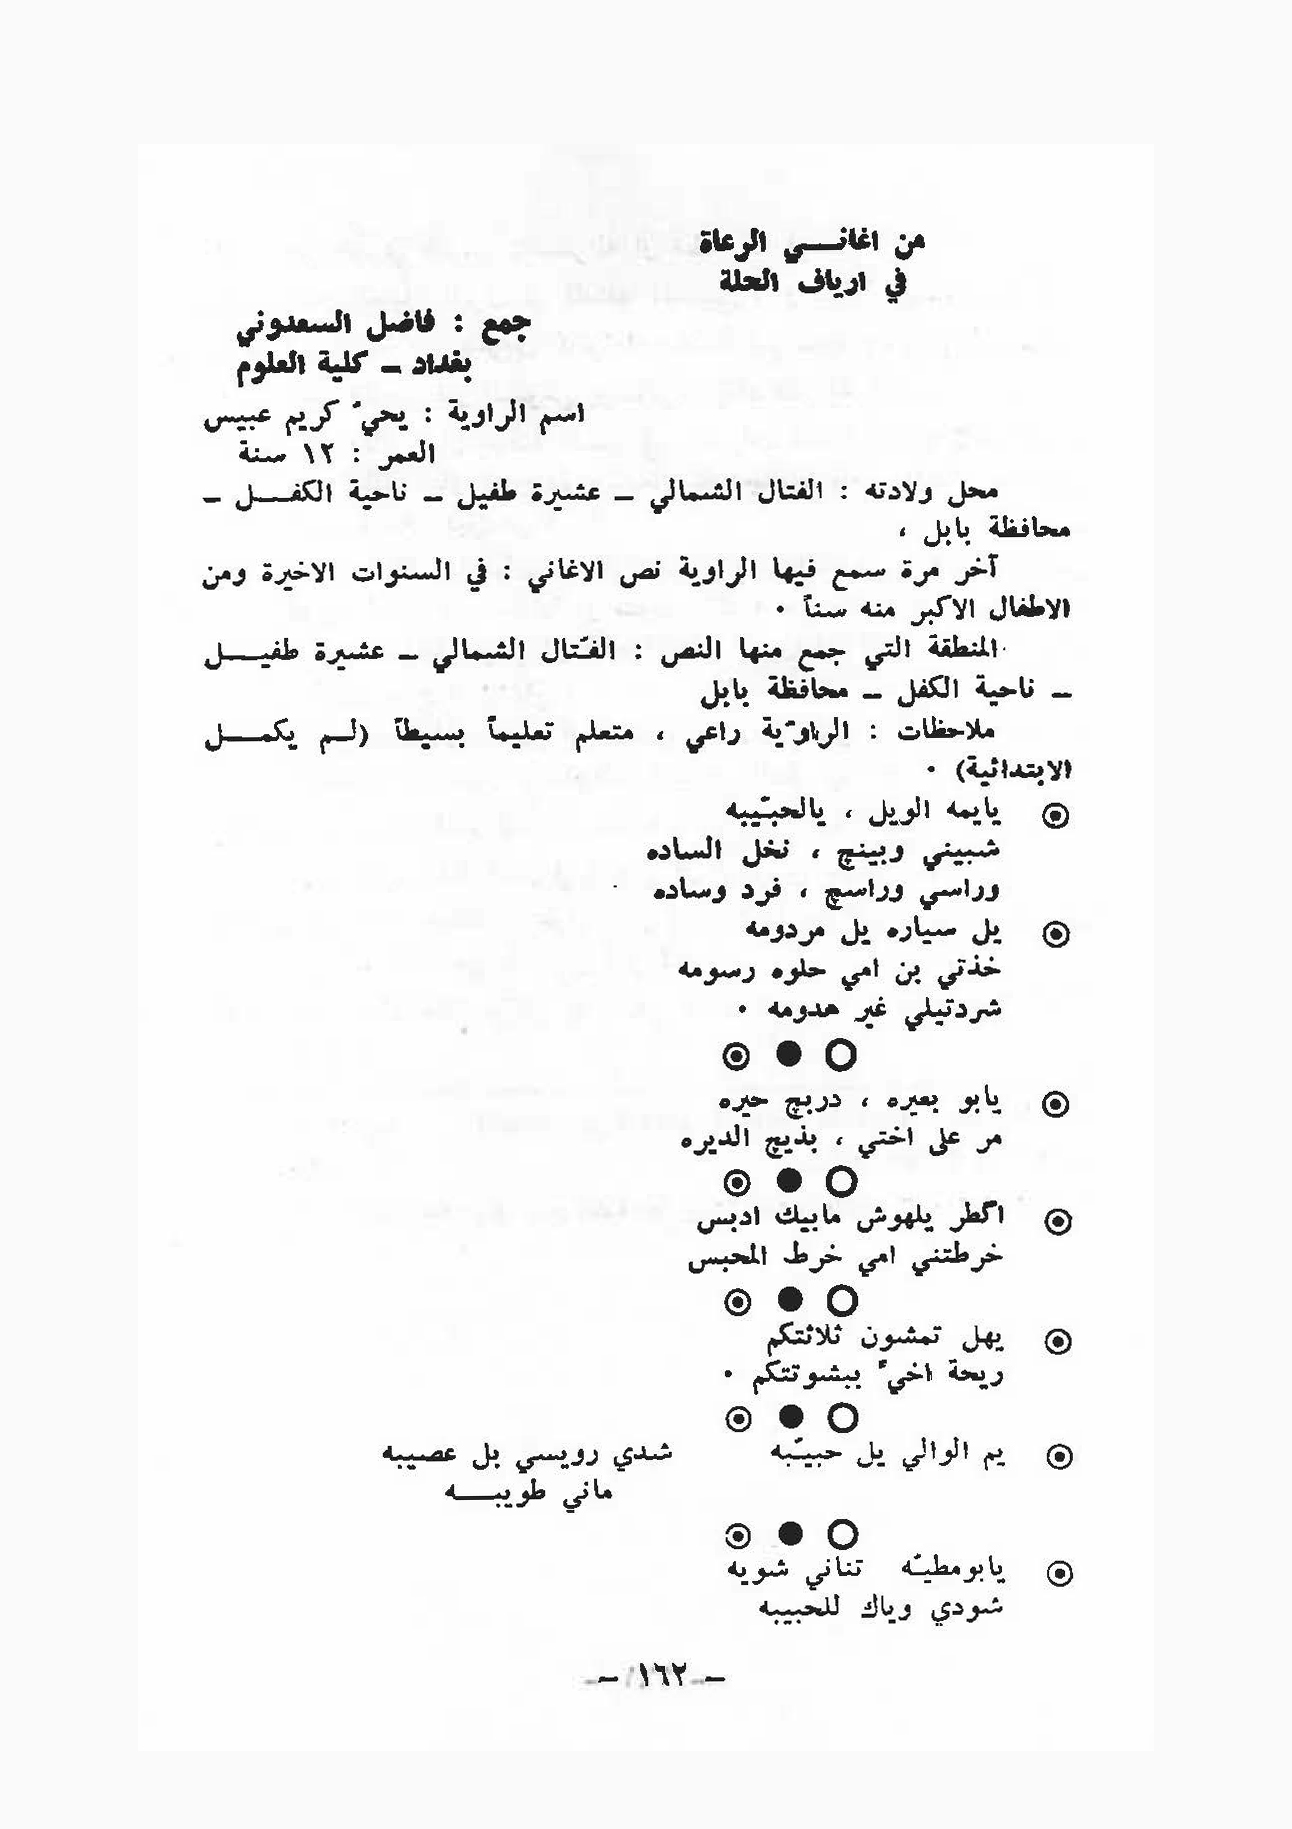 من اغانـــي الرعاة
في ارياف الحلة
جمع : فاضل السعدوني
بغداد ــ كلية العلوم
اسم الراوية : يحيّ كريم عبيس
العمر : ١٢ سنة
محل ولادته : الفتال الشمالي ــ عشيرة طفيل ــ ناحية الكفـــل ــ
محافظة بابل ،
آخر مرة سمع فيها الراوية نص الاغاني : في السنوات الاخيرة ومن
الاطفال الاكبر منه سناً ٠
المنطقة التي جمع منها النص : الفتّال الشمالي ــ عشيرة طفيـــل
ــ ناحية الكفل ــ محافظة بابل
ملاحظات : الراوّية راعي ، متعلم تعليماً بسيطاً (لـم يكمـــل
الابتدائية) ٠
◉ يايمه الويل ، يالحبيّبه
شبيني وبينچ ، نخل الساده
وراسي وراسچ ، فرد وساده
◉ يل سياره يل مردومه
خذتي بن امي حلوه رسومه
شردتيلي غير هدومه ٠
○ ● ◉
◉ يابو بعيره ، دربچ حيره
مر على اختي ، بذيچ الديره
○ ● ◉
◉ اگطر يلهوش مابيك ادبس
خرطتني امي خرط المحبس
○ ● ◉
◉ يهل تمشون ثلاثتكم
ريحة اخيّ ببشوتتكم ٠
○ ● ◉
◉ يم الوالي يل حبيّبه شدي رويسي بل عصيبه
ماني طويبـــه
○ ● ◉
◉ يابومطيّه تناني شويه
شودي وياك للحبيبه
– ١٦٢ –